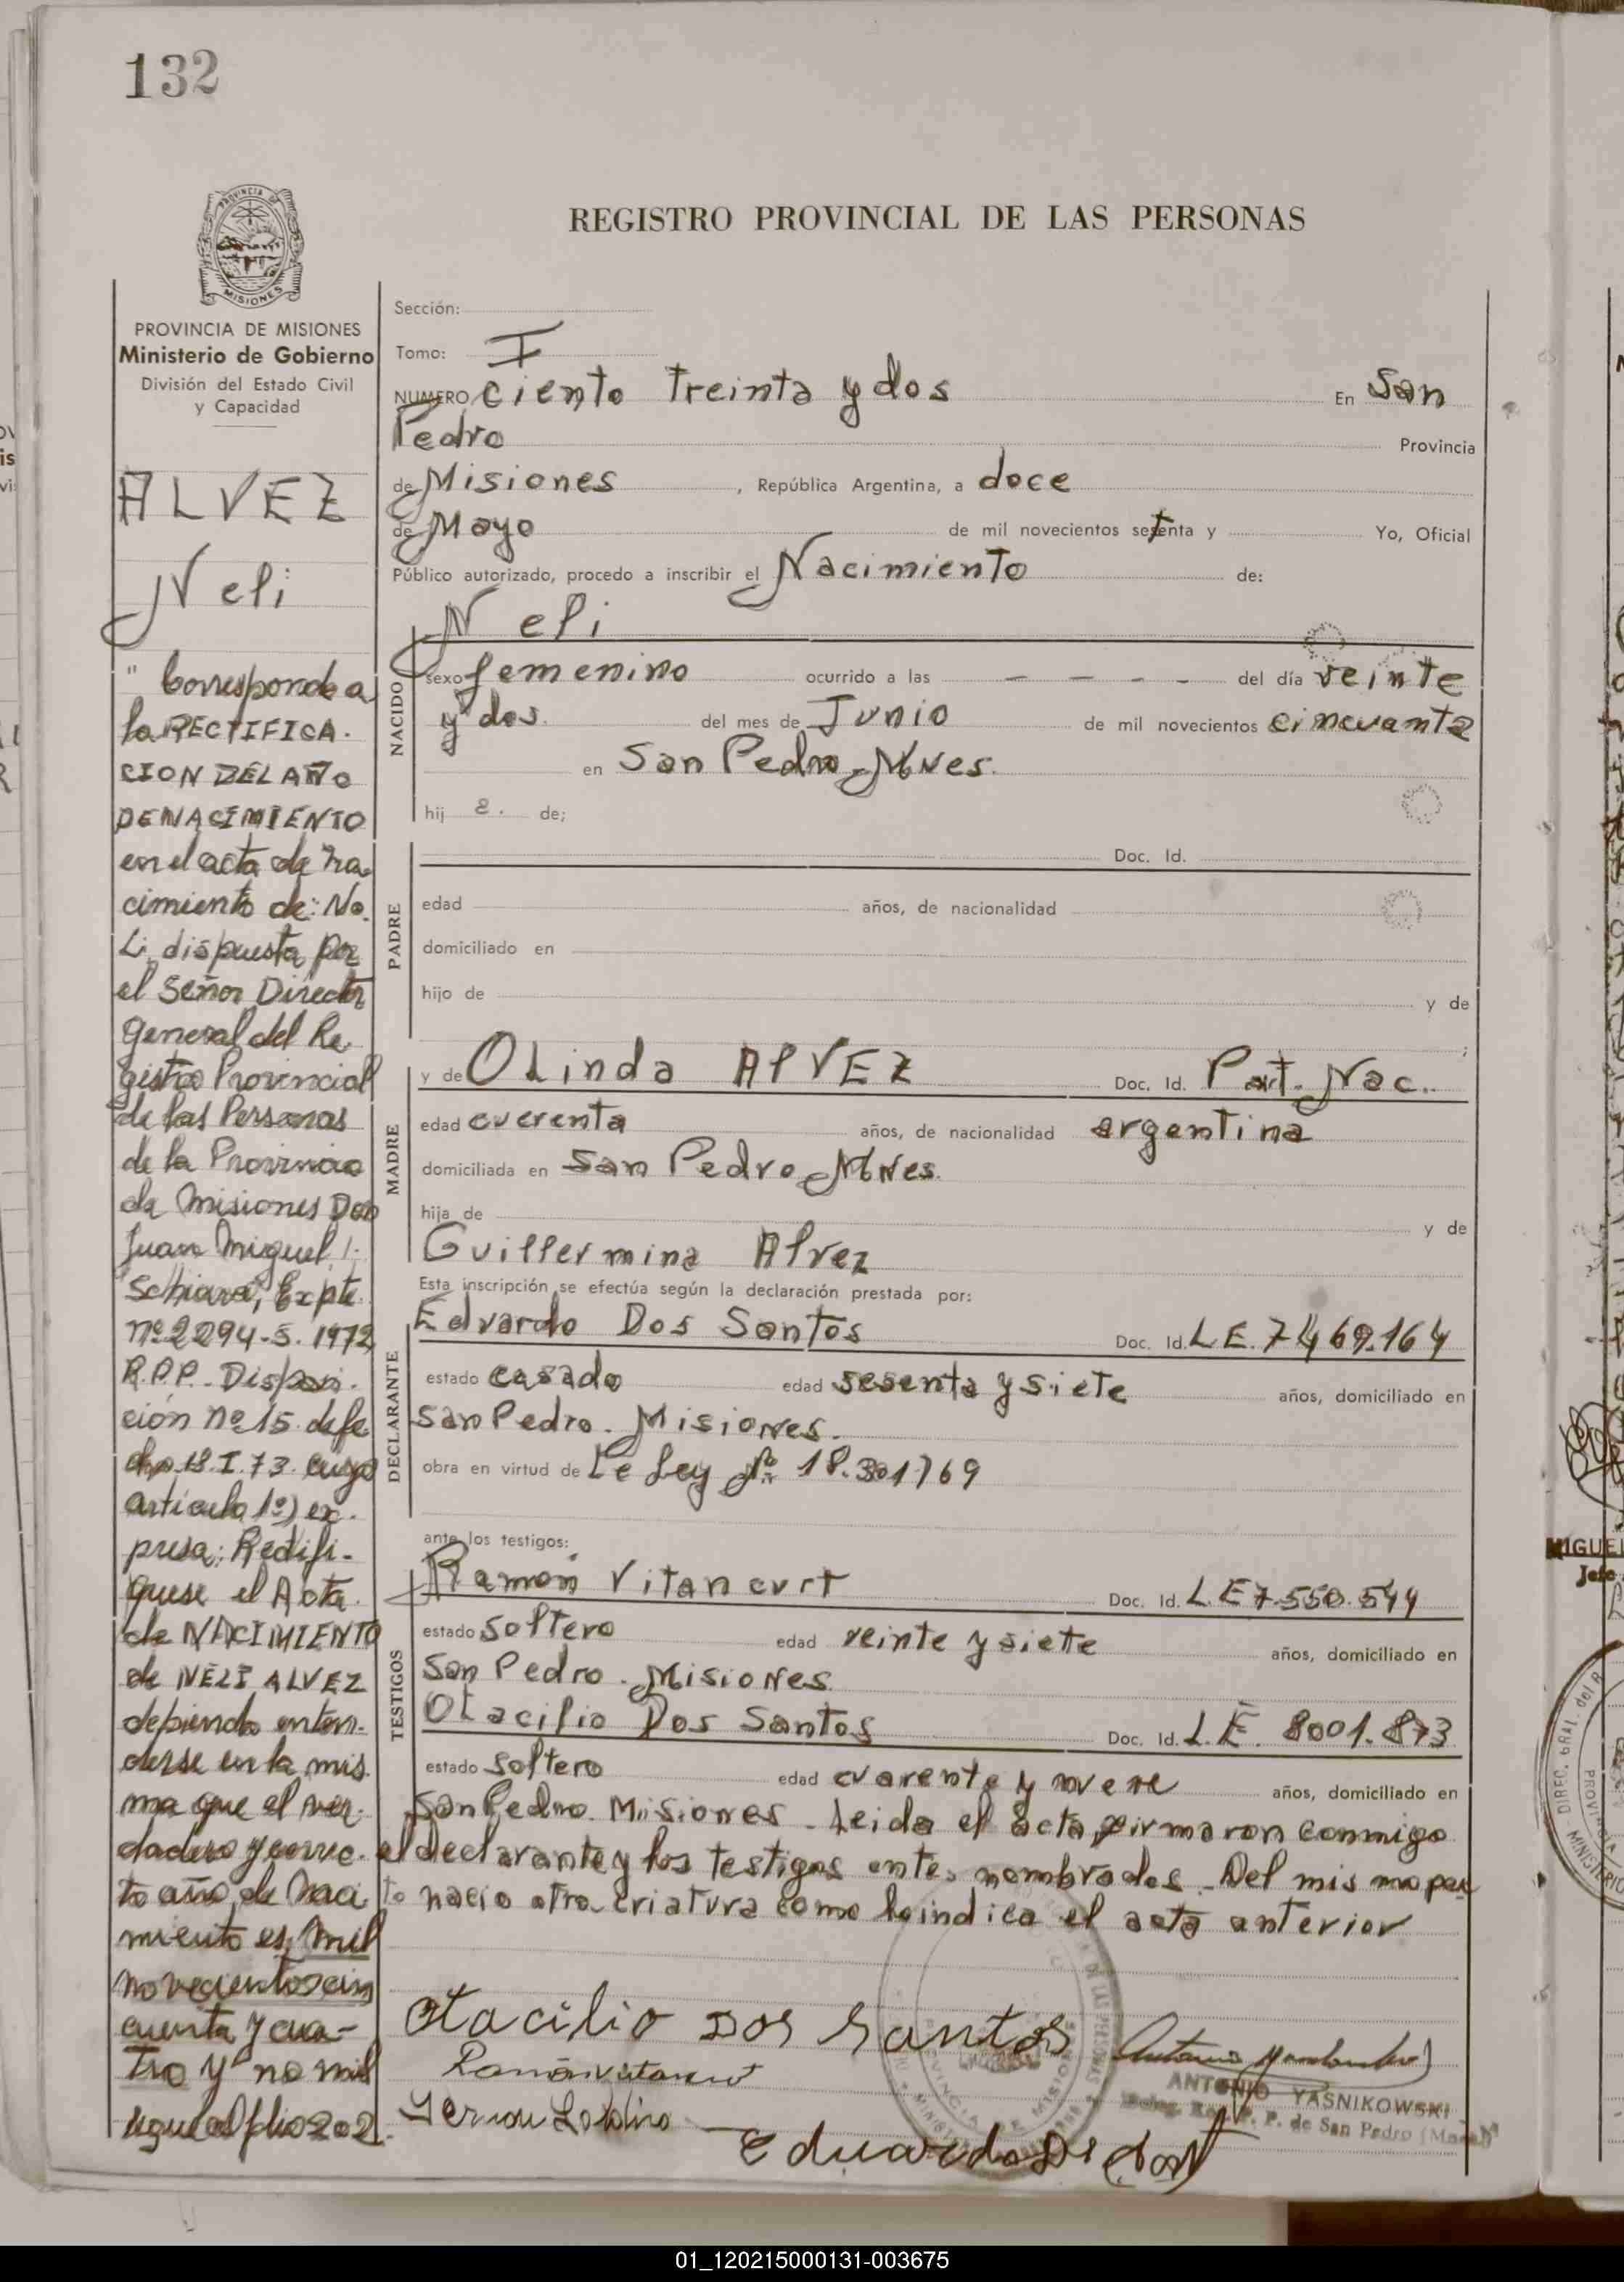 132
REGISTRO PROVINCIAL DE LAS PERSONAS
PROVINCIA DE MISIONES
Ministerio de Gobierno
División del Estado Civil
y Capacidad
ALVEZ
Neli
" Corresponde a
la RECTIFICA-
CION DEL AÑO
DE NACIMIENTO
en el acta de Na-
cimiento de: Ne-
Li, dispuesta por
el Señor Director
General del Re
gistro Provincial
de las Personas
de la Provincia
de Misiones Don
Juan Miguel
Schiava, Expte.
nº 2294-S-1972
R.P.P. Disposi-
ción nº 15 de fe
cha 18.I.73 cuyo
artículo 1º) ex-
presa: Rectifi-
quese el Acta
de NACIMIENTO
de NELI ALVEZ
debiendo enten-
derse en la mis
ma que el ver-
dadero y correc-
to año de naci
miento es mil
novecientos cin
cuenta y cua-
tro y no mil
sigue al folio 202
Sección:
Tomo: I
NUMERO ciento treinta y dos En San
Pedro Provincia
de Misiones , República Argentina, a doce
de Mayo de mil novecientos setenta y Yo, Oficial
Público autorizado, procedo a inscribir el Nacimiento de:
Neli
NACIDO
sexo femenino ocurrido a las - - - - del día veinte
y dos. del mes de Junio de mil novecientos cincuanta
en San Pedro Mnes.
hij a. de;
PADRE
Doc. Id.
edad años, de nacionalidad
domiciliado en
hijo de y de
;
MADRE
y de OLinda ALVEZ Doc. Id. Part. Nac.
edad cuerenta años, de nacionalidad argentina
domiciliada en San Pedro Mnes.
hija de y de
Guillermina Alvez
Esta inscripción se efectúa según la declaración prestada por:
DECLARANTE
Eduardo Dos Santos Doc. Id. L.E. 7469.164
estado casado edad sesenta y siete años, domiciliado en
San Pedro. Misiones.
obra en virtud de Le Ley Nº 18.301/69
ante los testigos:
TESTIGOS
Ramón Vitancurt Doc. Id. L.E 7.550.544
estado soltero edad veinte y siete años, domiciliado en
San Pedro. Misiones.
Otacilio Dos Santos Doc. Id. L.E. 8001.873
estado soltero edad cuarenta y nueve años, domiciliado en
San Pedro. Misiones. Leida el acta, firmaron conmigo
el declarante y los testigos antes nombrados. Del mismo par
to nacio otra criatura como lo indica el acta anterior
Otacilio Dos Santos
Ramón Vitancurt
Eduardo
ANTONIO YASNIKOWSKI
de San Pedro
MIGUEL
Jefe
DIREC. GRAL. del R
01_120215000131-003675